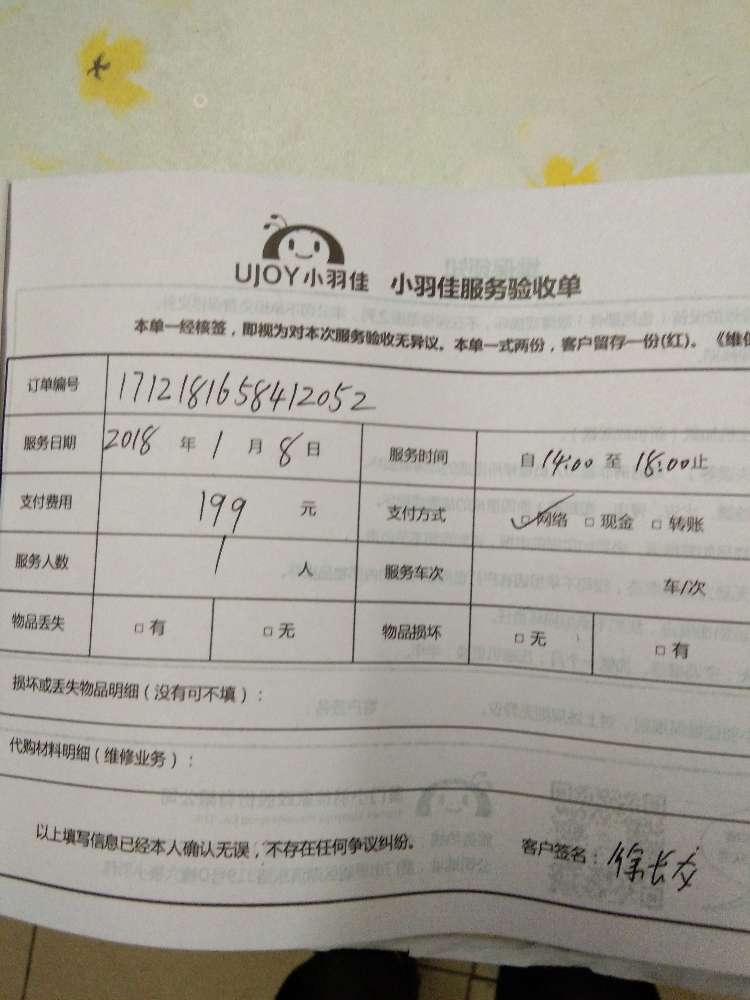 UJOY小羽佳 小羽佳服务验收单
本单一经核签，即视为对本次服务验收无异议。本单一式两份，客户留存一份(红)。《维
订单编号 1712181658412052
服务日期 2018 年 1 月 8 日 服务时间 自 14:00 至 18:00 止
支付费用 199 元 支付方式 ☑网络 □现金 □转账
服务人数 1 人 服务车次 车/次
物品丢失 □有 □无 物品损坏 □无 □有
损坏或丢失物品明细（没有可不填）：
代购材料明细（维修业务）：
以上填写信息已经本人确认无误，不存在任何争议纠纷。 客户签名：徐长友